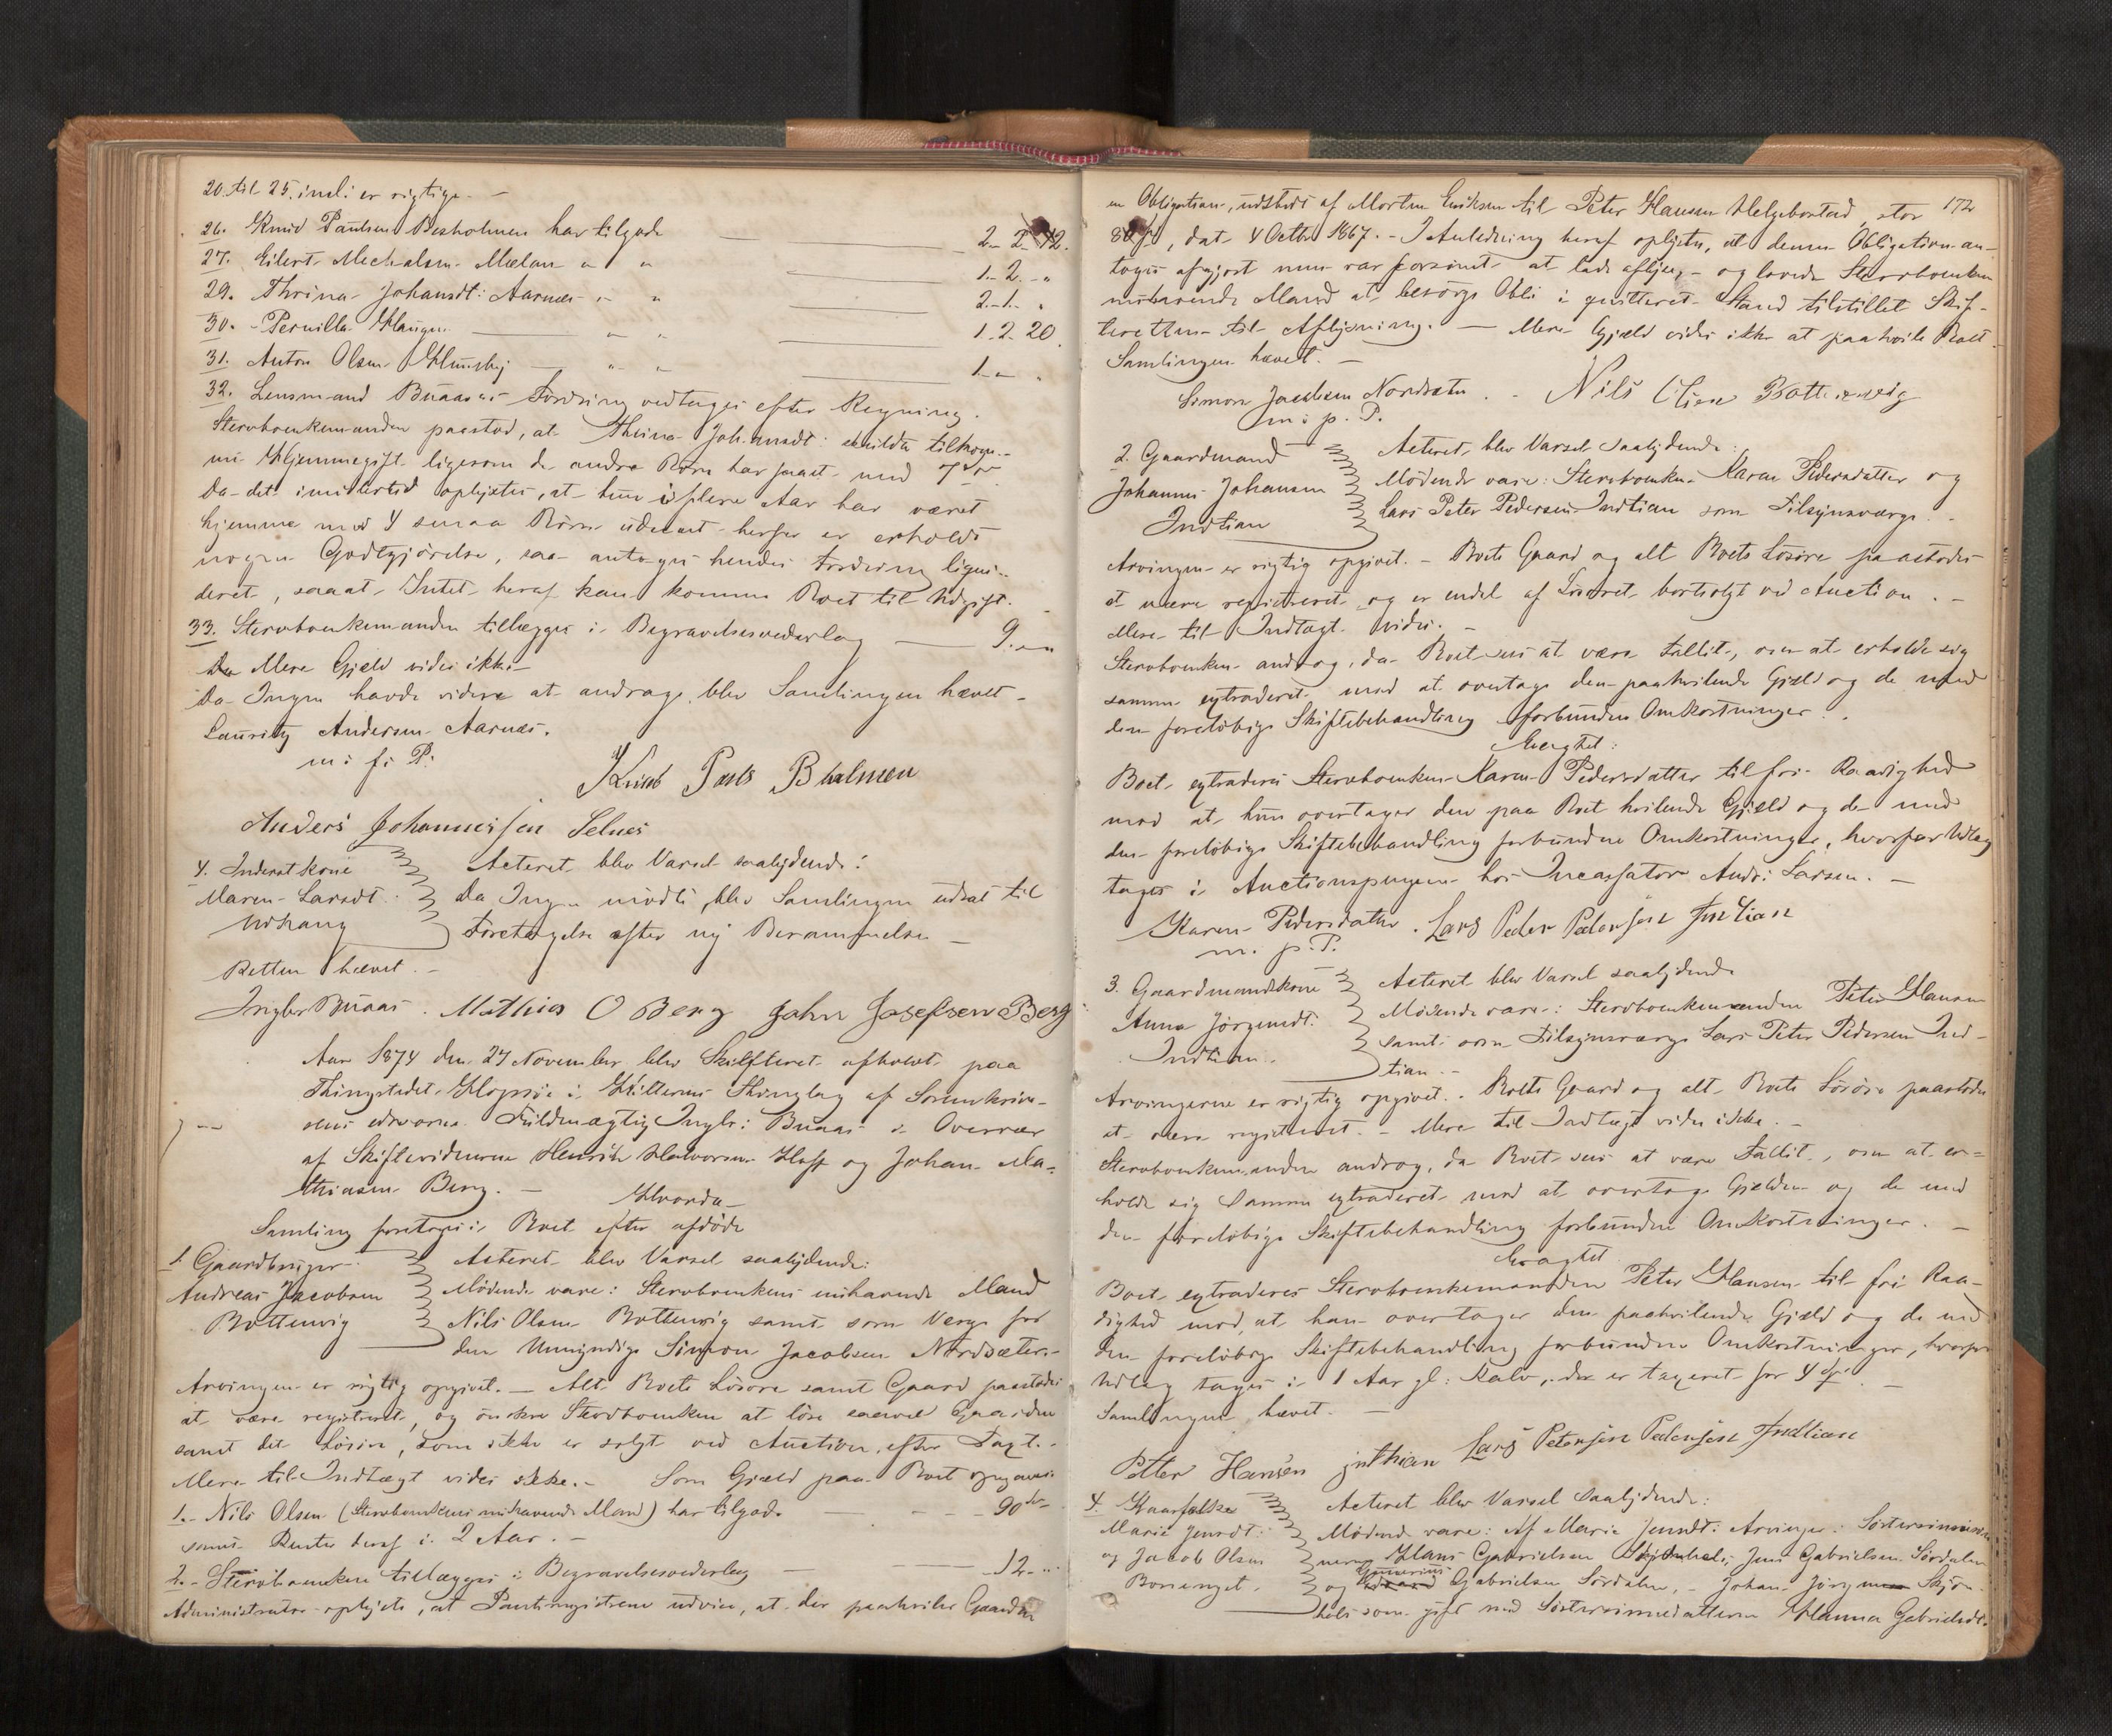 20. til 25. incl: er rigtige. -
26. Knud Paulsen Besholmen har tilgode 2-2-12.
27. Eilert Mechalsen Mælan " " 1-2-"
29. Thrina Johansdt: Aarnæs " " 2-1-"
30. Pernilla Haugen " " 1-2-20.
31. Anton Olsen " " 1-"-"
32. Lensmand Buaas's Fordring vedtages efter Regning.
Sterbboenkemanden paastod, at Thrina Johansdt: skulde tilkom-
me Hjemmegift ligesom de andre Børn har faaet med 7
Da det imidlertid oplystes, at hun i flere Aar har været
hjemme med 4 smaa Børn uden at herfor er erholdt
nogen Godtgjørelse, saa antoges hendes Fordring liqui-
deret, saaat Intet heraf kan komme Boet til Udgift.
33. Sterbboenkemanden tillægges i Begravelsesvederlag 9-"-"
Mere Gjæld vides ikke -
Da Ingen havde videre at andrage, blev Samlingen hævet -
Lauritz Andersen Aarnæs.
m: f: P:
Knud Pauls Bholmen
Anders Johannesen Selnes
4. Inderstkone Acteret blev Varsel saalydende:
Maren Larsdt: Da Ingen mødte, blev Samlingen udsat til
Udhaug Foretagelse efter ny Berammelse -
Retten hævet. -
Ingbr Buaas. Mathias O Berg John Josefsen Berg
Aar 1874 den 27 November blev Skifteret afholdt paa
Thingstedet Hopsjø i Hitterens Thinglag af Sorenskrive-
rens edsvorne Fuldmægtig Ingbr: Buaas i Overvær
af Skiftevidnerne Henrik Halvorsen Hoff og Johan Ma-
thiasen Berg. - Hvorda
Samling foretoges i Boet efter afdøde
1. Gaardbruger Acteret blev Varsel saalydende:
Andreas Jacobsen Mødende vare: Sterbboenkens nuhavende Mand
Bottenvig Nils Olsen Bottenvig samt som Verge for
den Umyndige Simon Jacobsen Nordsæter -
Arvingen er rigtig opgivet. - Alt Boets Løsøre samt Gaard paastodes
at være registreret, og ønsker Sterbboenken at løse saavel Gaarden
samt det Løsøre, som ikke er solgt ved Auction, efter Taxt. -
Mere til Indtægt vides ikke. - Som Gjæld paa Boet opgaves
1. - Nils Olsen (Sterbboenkens nuhavende Mand) har tilgode - 90
samt Renter heraf i 2 Aar. -
2. - Sterbboenken tillægges i Begravelsesvederlag - 12-"-"
Administrator oplyste, at Panteregistrene udvise, at der paahviler Gaarden
172
en Obligation, udstedt af Morten Eriksen til Peter Hansen Helgebostad, stor
80, dat. 4 Octbr 1867. - I Anledning heraf oplystes, at denne Obligation an-
toges afgjort men var forsømt at lade aflyse, - og lovede Sterbboenkens
nuhavende Mand at besørge Obli: i quitteret Stand tilstillet Skif-
teretten til Aflysning. - Mere Gjæld vides ikke at paahvile Boet.
Samlingen hævet. -
Simon Jacobsen Nordsæter. - Nils Olsen Bottenvig
m: p. P.
2. Gaardmand Acteret blev Varsel saalydende:
Johannes Johansen Mødende vare: Sterbboenken Karen Pedersdatter og
Indtian Lars Peter Pedersen Indtian som Tilsynsværge. -
Arvingen er rigtig opgivet. - Boets Gaard og alt Boets Løsøre paastodes
at være registreret og er endel af Løsøret bortsolgt ved Auction. -
Mere til Indtægt vides. -
Sterbboenken androg, da Boet sees at være Fallit, om at erholde sig
samme extraderet mod at overtage den paahvilende Gjæld og de med
den foreløbige Skiftebehandling forbundne Omkostninger.
Eragtet:
Boet extraderes Sterbboenken Karen Pedersdatter til fri Raadighed
mod at hun overtager den paa Boet hvilende Gjæld og de med
den foreløbige Skiftebehandling forbundne Omkostninger, hvorfor Udlæg
tages i Auctionspengene hos Incassator Andr: Larsen. -
Karen Pedersdatter. Lars Peder Pedersen Indtian
m. p. P.
3. Gaardmandskone Acteret blev Varsel saalydende
Anna Jørgensdt: Mødende vare: Sterbboenkemanden Peter Hansen
Indtian. samt som Tilsynsværge Lars Peter Pedersen Ind-
tian. -
Arvingerne er rigtig opgivet. - Boets Gaard og alt Boets Løsøre paastodes
at være registreret. - Mere til Indtægt vides ikke. -
Sterbboenkemanden androg, da Boet sees at være Fallit, om at er-
holde sig samme extraderet mod at overtage Gjælden og de med
den foreløbige Skiftebehandling forbundne Omkostninger. -
Eragtet
Boet extraderes Sterbboenkemanden Peter Hansen til fri Raa-
dighed mod, at han overtager den paahvilende Gjæld og de med
den foreløbige Skiftebehandling forbundne Omkostninger, hvorfor
Udlæg tages i 1 Aar gl: Kalv, der er taxeret for 4
Samlingen hævet. -
Petter Hansen inthian Lars Petersen Pedersen Indtian
4. Kaarfolkene Acteret blev Varsel saalydende:
Marie Jensdt: Mødende vare: Af Marie Jensdt: Arvinger: Søstersønnerne
og Jacob Olsen Hans Gabrielsen Jens Gabrielsen Sørdalen
Borsenget. og Gabrielsen Sørdalen, - Johan Jørgensen Skjøn-
hals som gift med Søstersønnedatteren Hanna Gabrielsdt: